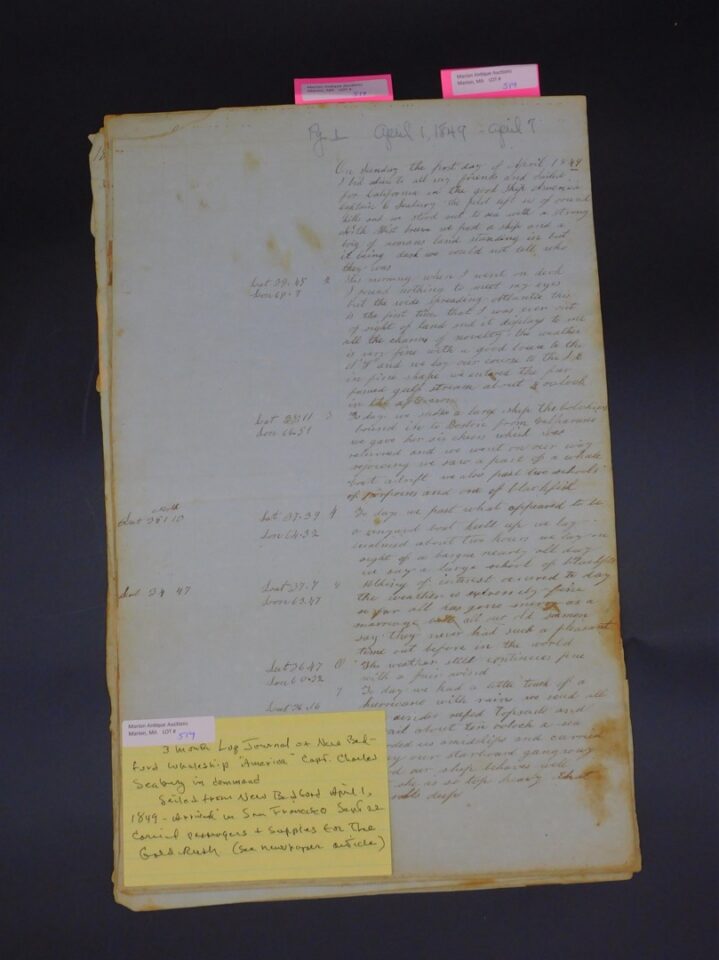 Marion Antique Auctions
Marion, MA LOT #
579
Marion Antique Auctions
Marion, MA LOT #
579
Pg 1 April 1, 1849 - April 7
On Sunday the first day of April 1849
I bid adieu to all my friends and sailed
for California in the good ship America
Captain C Seabury the pilot left us of
we stood out to sea with a strong
we had a ship and a
land standing in but
it being dark we could not tell who
they was
Lat 39.45 2 This morning when I went on deck
Lon 69.7 I found nothing to meet my eyes
but the wide spreading Atlantic this
is the first time that I was ever out
of sight of land and it displays to me
all the charms of novelty the weather
is very fine with a good breeze to the
and we lay our course to the S E
in fine shape we entered the far
famed gulf stream about 4 oclock
in the afternoon
Lat 3 To day we a large ship the
Lon 66.51 bound in to Boston from
we gave her six cheers which was
returned and we went on our way
rejoicing we saw a part of a whale
boat adrift we also past two schools
of porpoises and one of blackfish
North
Lat 38 10 Lat 37.39 4 To day we past what appeared to be
Lon 64.32 a vinyard boat keel up we lay
becalmed about two hours we lay in
sight of a barque nearly all day
we say a large school of blackfish
47 Lat 37.7 Nothing of interest occured to day
Lon 63.47 the weather is extremely fine
so far all has gone merry as a
marriage our old
say they never had such a pleasant
time out before in the world
Lat 36.47 6 The weather still continues fine
Lon 60.22 with a fair wind
7 To day we had a little touch of a
Lat 36.56 hurricane with rain we
under reefed Topsails and
about ten oclock a sea
us amidships and carried
our starboard gangway
our ship behaves well
she is so top heavy that
deep
Marion Antique Auctions
Marion, MA LOT #
579
3 month Log Journal of New Bed-
ford Whaleship "America" Capt. Charles
Seabury in command
Sailed from New Bedford April 1,
1849 - Arrived in San Francisco Sept 22
Carried passengers + supplies for The
Gold-Rush (see newspaper article)